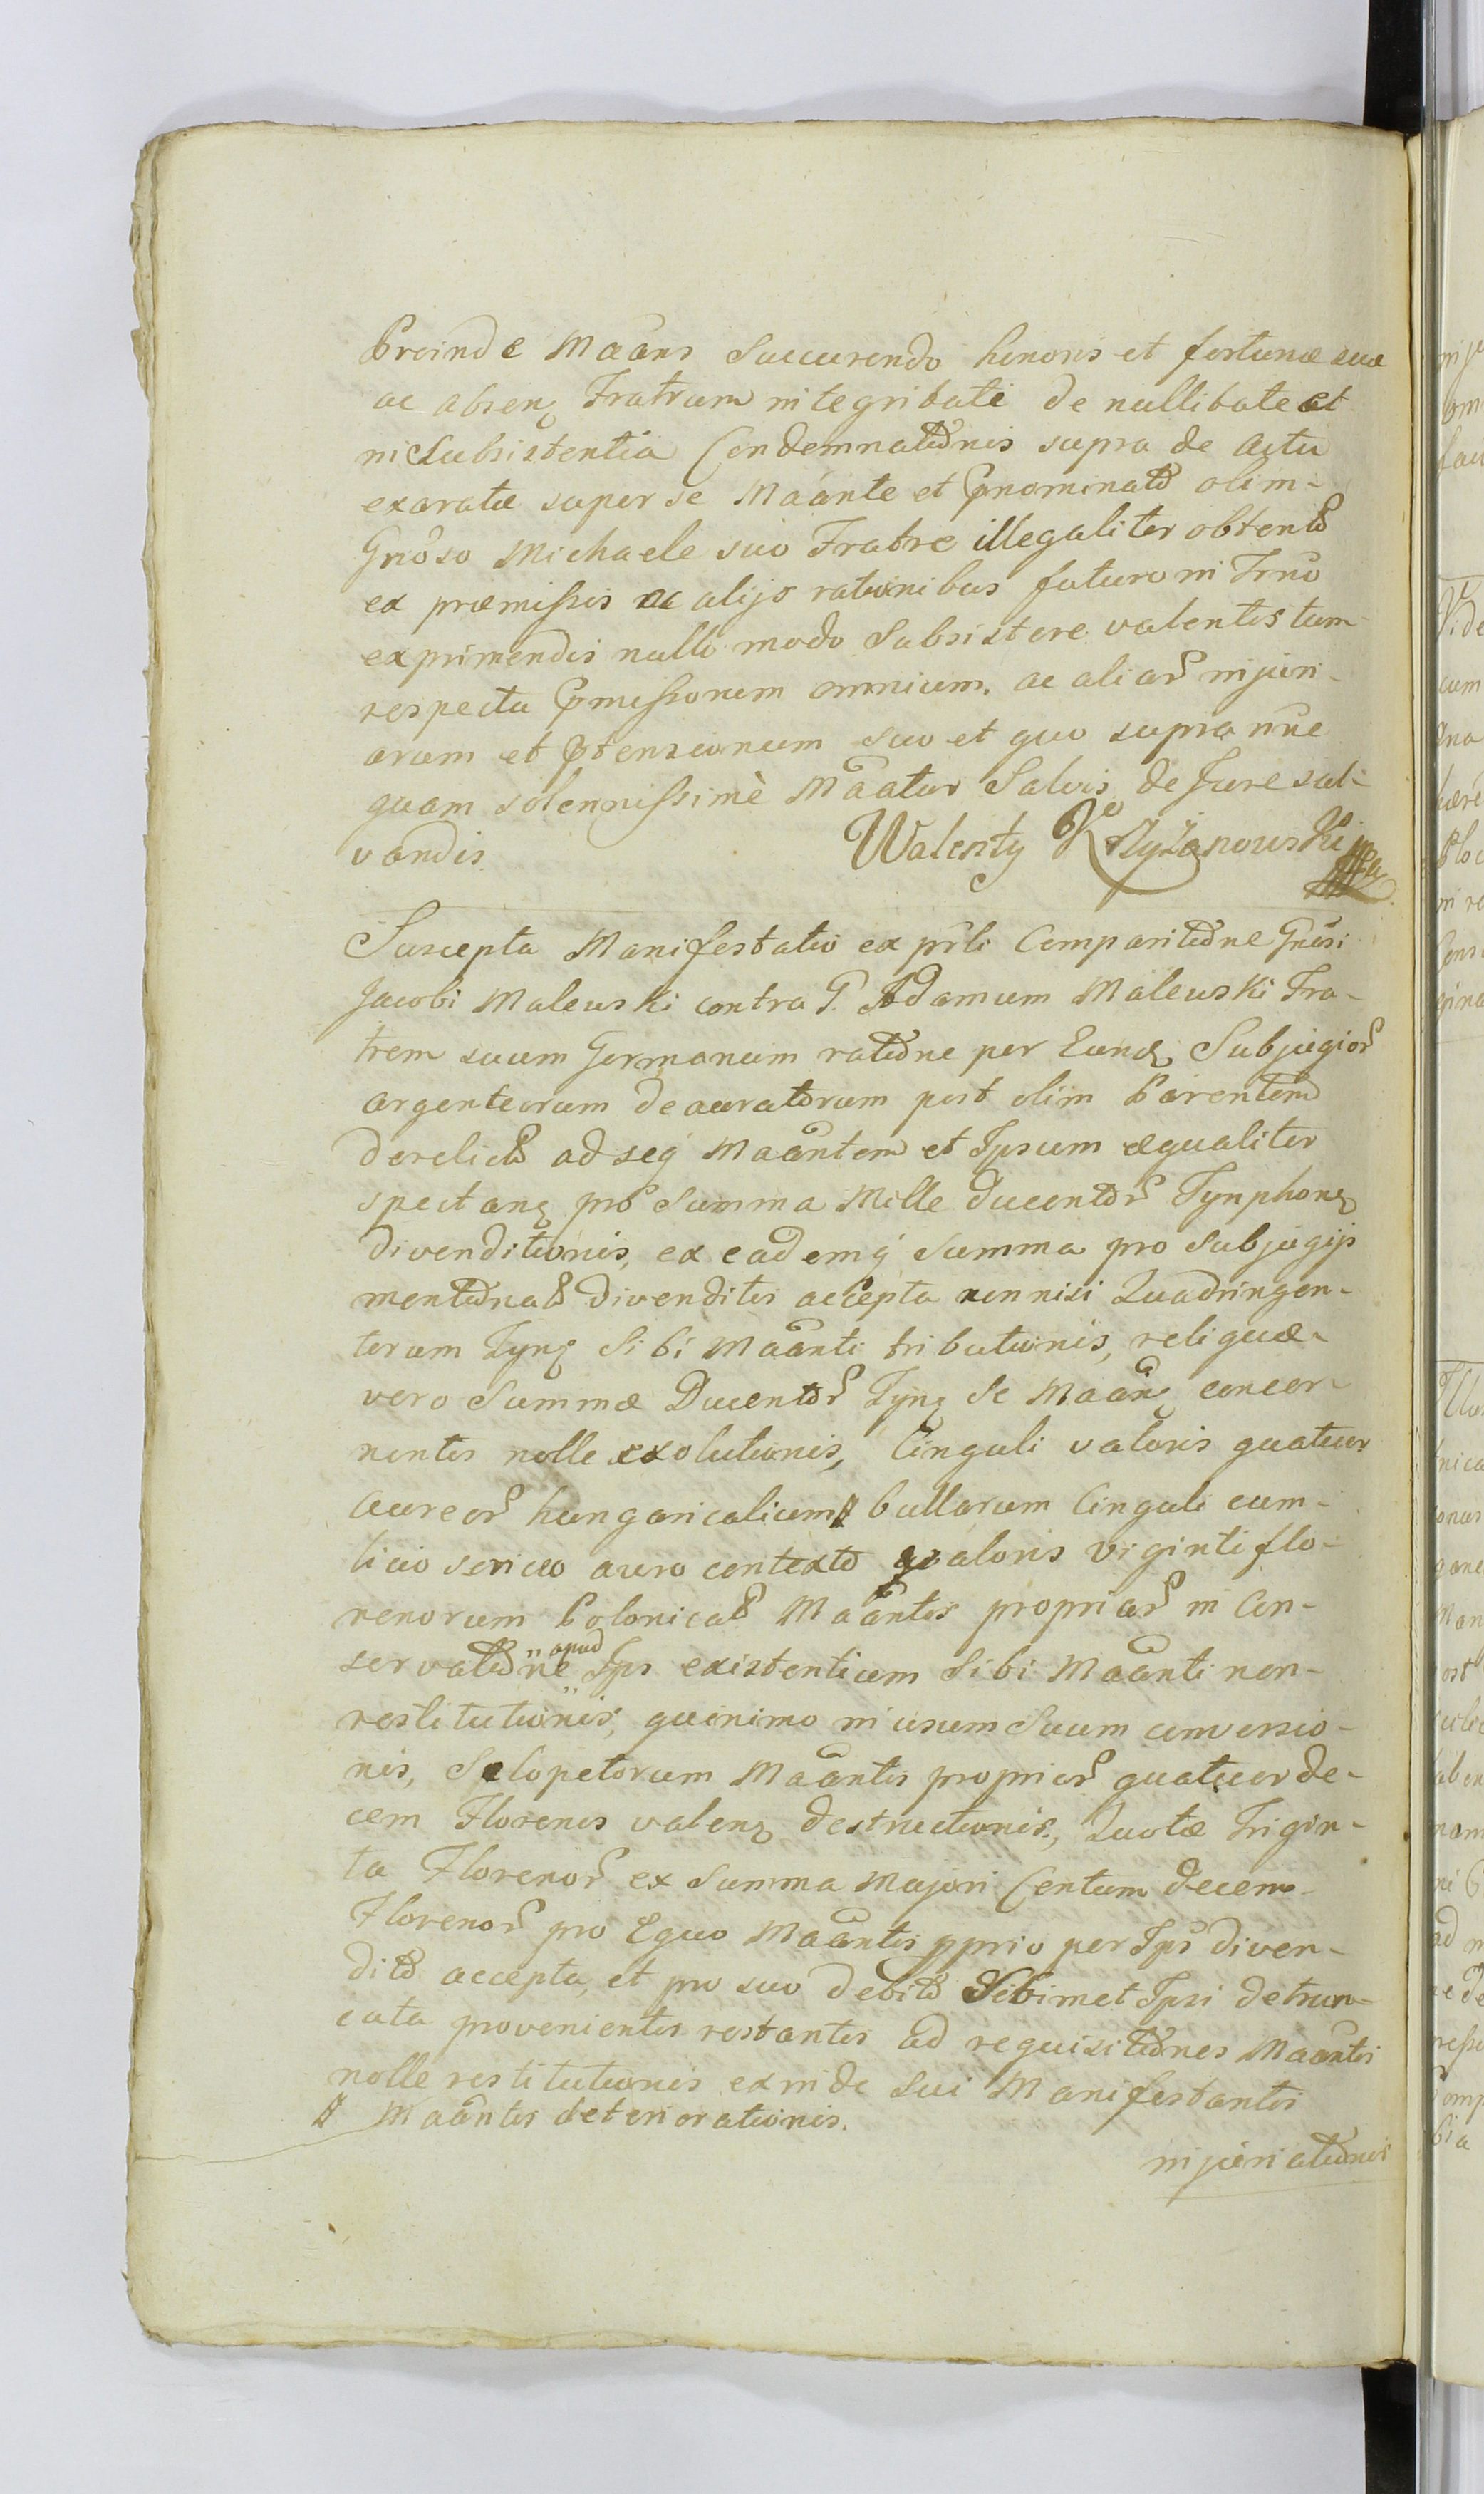 Proinde Maans Succurendo honoris et fortunæ suæ
ac absen Fratrum integritati de nullitate et
insubsistentia Condemnationis supra de actu
exaratæ super se Maante et pnominato olim
Gnoso Michaele suo Fratre illegaliter obtento
ex præmissis ac alijs rationibus futuro in Trno
exprimendis nullo modo Subsistere valentis tum
respectu pmissorum omnium. ac aliar injuri-
arum et ptensionum suo et quo supra nne
quam solennissimè Maatur Salvis de Jure sal-
vandis. Walenty Krzyżanowski mpa
Suscepta Manifestatio ex prli Comparitione Gnosi
Jacobi Malewski contra G. Adamum Malewski Fra-
trem suum Germanum ratione per Eund Subjugior
argenteorum deauratorum post olim Parentem
derelicto ad seq Maantem et Ipsum æqualiter
spectan pro Summa Mille ducentor Tynphon
divenditionis, ex eademq Summa pro Subjugijs
mentionat divenditis accepta nonnisi Quadringen-
torum Tyn Sibi Maanti tributionis, reliquæ
vero Summæ Ducentor Tyn Se Maan concer-
nentis nolle exolutionis, Cinguli valoris quatuor
aureor hungaricalium # bullarum Cinguli cum
licio sericeo auro contexto valoris viginti flo-
renorum Polonical Maantis propriar in Con-
servatione apud Ips existentium Sibi Maanti non
restitutionis, quinimo in usum Suum conversio-
nis, Sclopetorum Maantis proprior quatuor de-
cem Florenos valen destructionis, Quotæ Trigin-
ta Florenor ex Summa Majori Centum decem
Florenor pro Equo Maantis pprio per Ips diven-
dito accepta, et pro suo debito Sibimet Ipsi detrun-
cata provenientis restantis ad requisitiones Maantis
nolle restitutionis exinde sui Manifestantis
# Maantis deteriorationis.
injuriationis